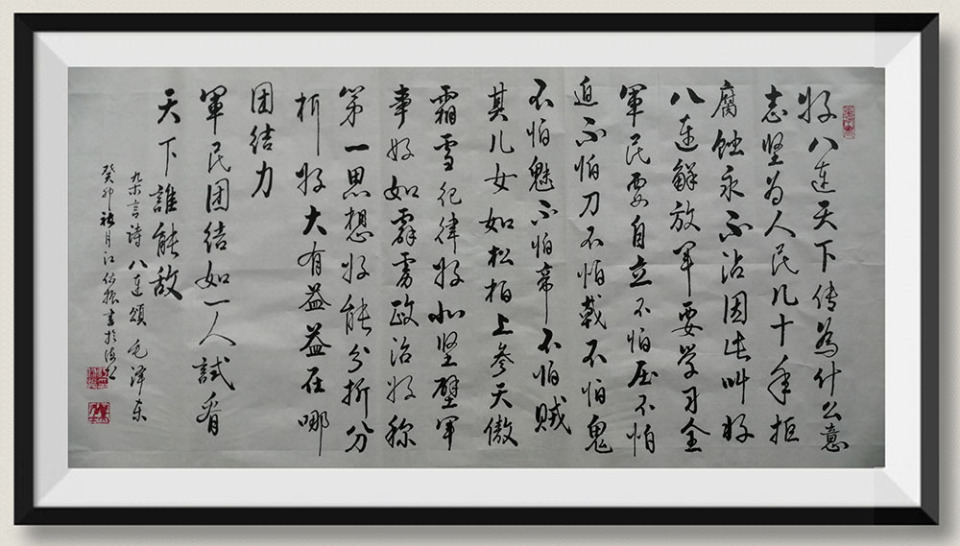 好八连天下传为什么意
志坚为人民几十年拒
腐蚀永不沾因此叫好
八连解放军要学习全
軍民要自立不怕压不怕
迫不怕刀不怕戟不怕鬼
不怕魅不怕帝不怕贼
其儿女如松柏上参天傲
霜雪纪律好如坚壁军
事好如霹雳政治好称
第一思想好能分析分
析好大有益益在哪
团结力
軍民团结如一人試看
天下誰能敌
杂言詩八连頌毛泽东
癸卯月江振書於